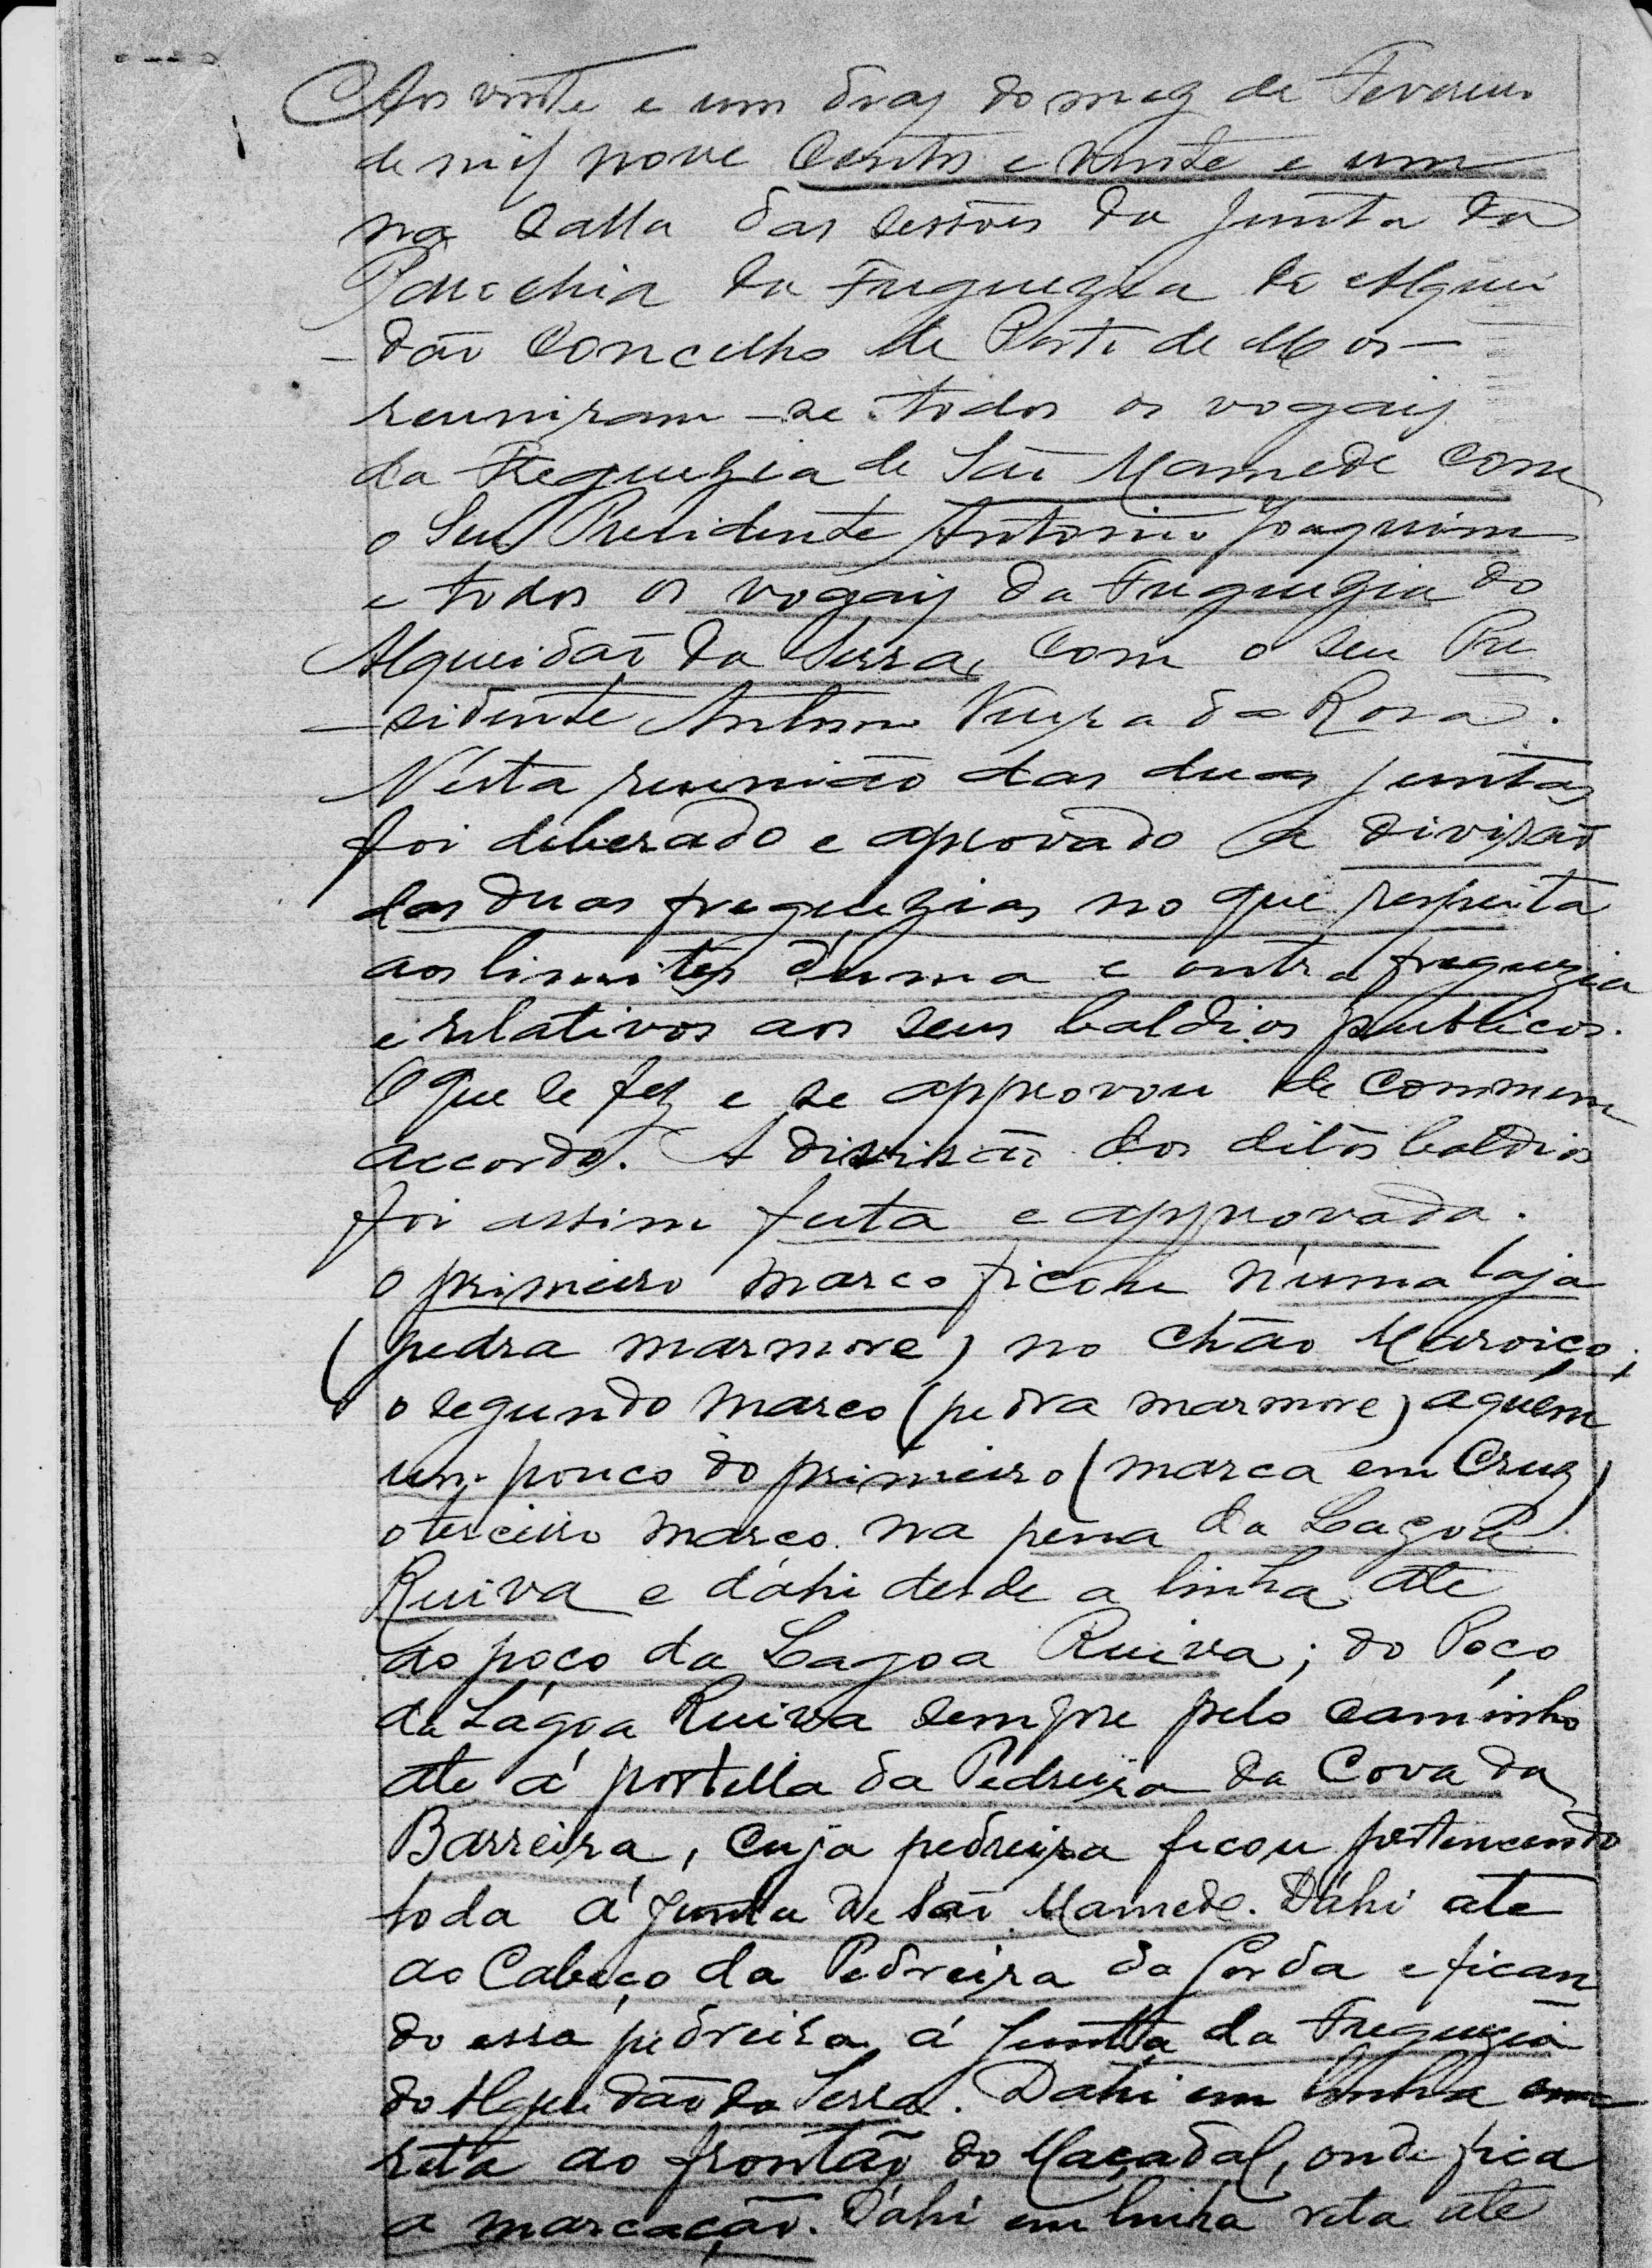 Aos vinte e um dias do mez de Fevereiro
de mil nove centos e vinte e um
na salla das sessões da Junta da
Parochia da Freguezia do Alquei
-dão Concelho de Porto de Mós -
reuniram-se todos os vogais
da Freguezia de São Mamede com
o Seu Presidente Antonio Joaquim
e todos os vogais da Freguezia do
Alqueidão da Serra, com o seu Pre
-sidente Antonio Vieira da Rosa.
Nésta reunião das duas juntas
foi deliberado e aprovado a divisão
das duas freguezias no que respeita
aos limites d'uma e outra freguezia
e relativos aos seus baldios publicos.
O que se fez e se approvou de commum
accordo. A divisão dos ditos baldios
foi assim feita e approvada.
o primeiro marco ficou n'uma laja
(pedra marmore) no Chão Maroiço;
o segundo marco (pedra marmore) aquém
um pouco do primeiro (marca em Cruz)
o terceiro marco na pena da Lagoa
Ruiva e d'ahi desde a linha até
ao poço da Lagoa Ruiva; do Poço
da Lagoa Ruiva sempre pelo caminho
até á portella da Pedreira da Cova da
Barreira, cuja pedreira ficou pertencendo
toda á Junta de São Mamede. D'ahi até
ao Cabeço da Pedreira da Corda e fican
do essa pedreira á Junta da Freguezia
do Alqueidão da Serra. Dahi em linha
reta ao frontão do Maçadal, onde fica
a marcação. D'ahi em linha reta até